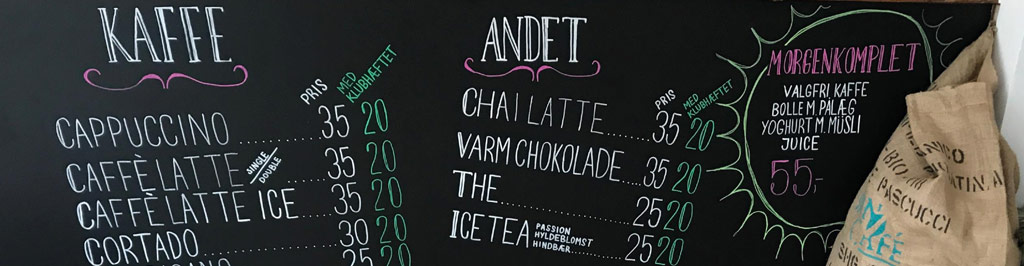 KAFFE
PRIS
MED KLUBHÆFTET
CAPPUCCINO 35 20
CAFFÈ LATTE SINGLE DOUBLE 35 20
CAFFÈ LATTE ICE 35 20
CORTADO 30 20
ANDET
PRIS
MED KLUBHÆFTET
CHAI LATTE 35 20
VARM CHOKOLADE 35 20
THE 25 20
ICE TEA PASSION HYLDEBLOMST HINDBÆR 25 20
MORGENKOMPLET
VALGFRI KAFFE
BOLLE M. PALÆG
YOGHURT M. MÜSLI
JUICE
55,-
PASCUCCI